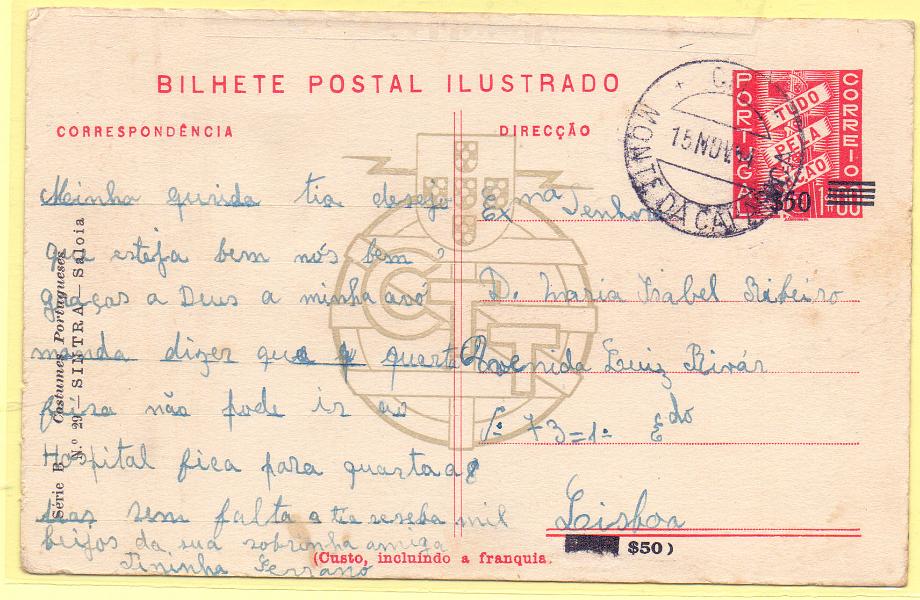 BILHETE POSTAL ILUSTRADO
CORRESPONDÊNCIA
DIRECÇÃO
PORTUGAL
CORREIO
TUDO
PELA
NAÇÃO
$50
MONTE DA CA
15 NOV
CTT
Série B Costumes Portugueses
N.º 29 — SINTRA — Saloia
Minha querida tia desejo
que esteja bem nós bem
graças a Deus a minha avó
manda dizer que quarta
feira não pode ir ao
Hospital fica para quarta
sem falta a tia reseba mil
beijos da sua sobrinha amiga
Tininha Serrano
Ex ma Senhora
D. Maria Isabel Ribeiro
Avenida Luiz Bivár
Nº 73=1º Edo
Lisboa
(Custo, incluíndo a franquia.
$50)